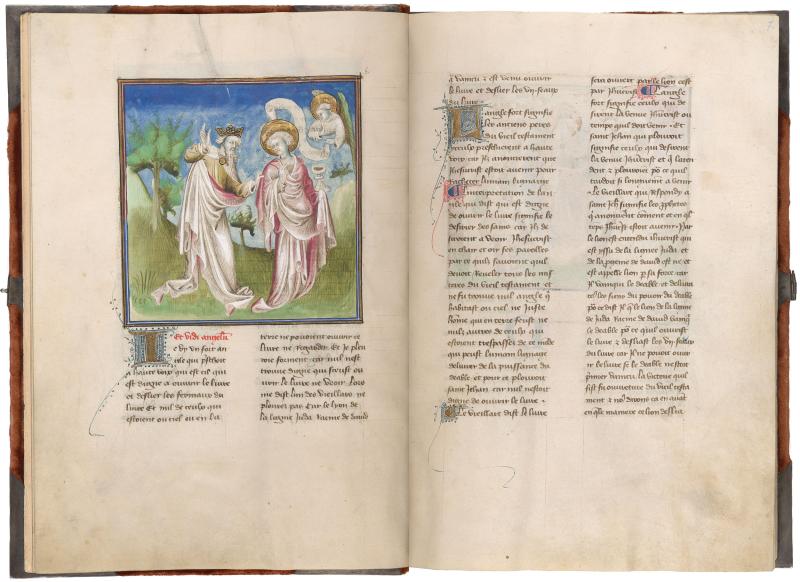 Et vidi angelu
e vy un fort an
gle qui
a haute voix qui est cil qui
est digne a ouvrir le livre
et deslier les fermaux du
livre Et nul de ceulx qui
estoient ou ciel ou en la
terre ne pouoient ouvrir ce
livre ne regarder Et je plou
roie forment car nul nest
trouve digne qui ou
vrir le livre ne veoir Lors
me dist lun des vieillars ne
plourez pas Car le lyon de
la lignie Juda Racine de david
a vaincu et est venu ouvrir
le livre et deslier les vij seaux
du livre
Langle fort signifie
les anciens peres
du vieil testament
ceulx prescherent a haute
voix car ilz anoncerent que
Jhesucrist estoit avenir pour
racheter lumain lignaige
Linterrogacion de lan
gle qui dist qui est digne
de ouvrir le livre signifie le
desirier des sains car ilz de
siroient a veoir Jhesucrist
en chair et oir ses paroles
par ce quilz savoient quil
devoit Reveler tous les mis
teres du vieil testament et
ne fu trouve nul angle qui
habitast ou ciel ne Juste
home qui en terre feust ne
nulz autres de ceulx qui
estoient trespassez de ce monde
qui peust lumain lignaige
delivrer de la puissance du
deable et pour ce plouroit
saint Jehan car nul nestoit
digne de ouvrir le livre
Le vieillart dist le livre
sera ouvert par le lion cest
par Jhucrist Langle
fort signifie ceulx qui de
sirent la venue Jhucrist ou
temps qui doit venir Et
saint Jehan qui plouroit
signifie ceulx qui desirent
la venue Jhucrist et
dent et plourent po ce quil
tardoit si longuement a venir
Le vieillart qui respondy a
saint Jeh signifie les pphetes
qui anoncent coment et en ql
teps Jhucrist estoit avenir Par
le lion est entendu Jhucrist qui
est yssu de la lignee Juda et
de la racine de david et
est appelle lion p sa force car
il vainqui le deable et delivra
tous les siens du pouoir du deable
po ce dist il q le lion de la lignie
de Juda Racine de david vainq
le deable po ce quil ouvrist
le livre et desliast les vij seaux
du livre car il ne pouoit ouvrir
le livre se le deable ne stoit
primer vaincu La victoire quil
fist fu ouverture du vieil testa
ment et no dirons ca en avat
en qle maniere ce lion deslia